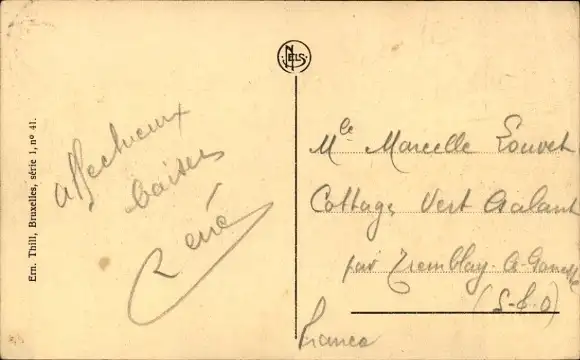 Ern. Thill, Bruxelles, série 1, nº 41.
NELS
affectueux
baisers
René
Mlle Marcelle Louvet
Cottage Vert Galant
par Tremblay-le-Gonesse
(S-&-O)
France